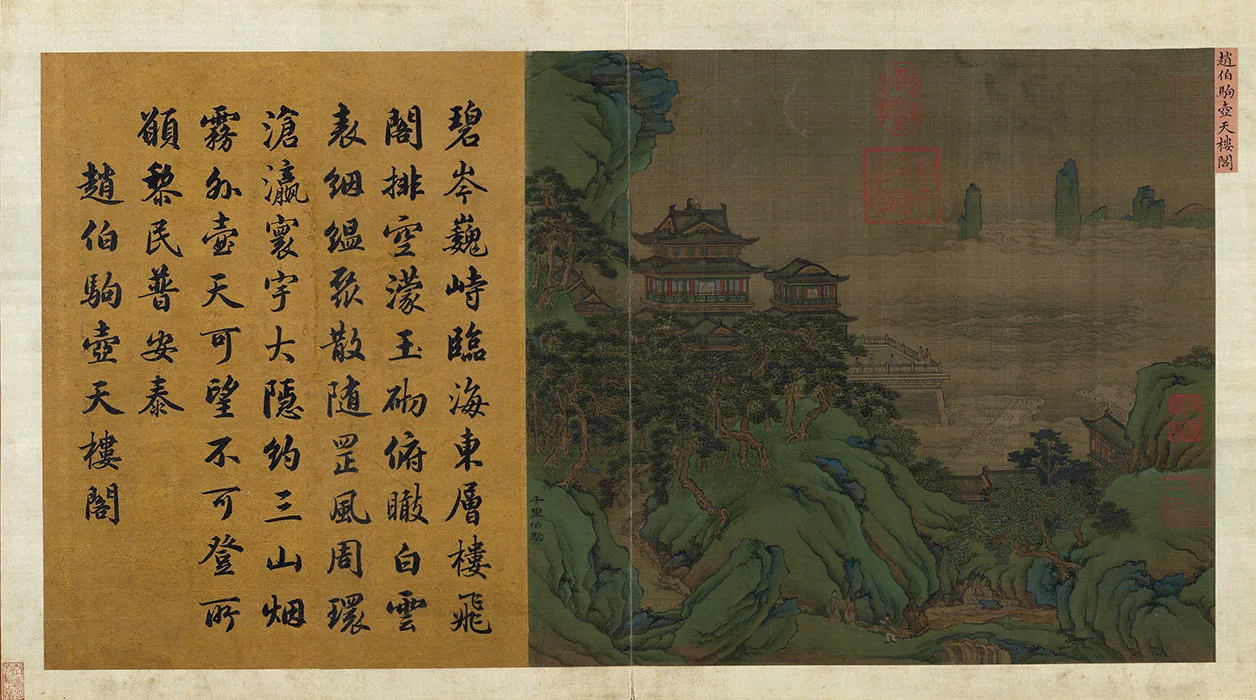 趙伯駒壺天樓閣
千里伯駒
碧岑巍峙臨海東層樓飛
閣排空濛玉砌俯瞰白雲
表絪緼聚散随罡風周環
滄瀛寰宇大隱約三山烟
霧外壺天可望不可登所
願黎民普安泰
趙伯駒壺天樓閣